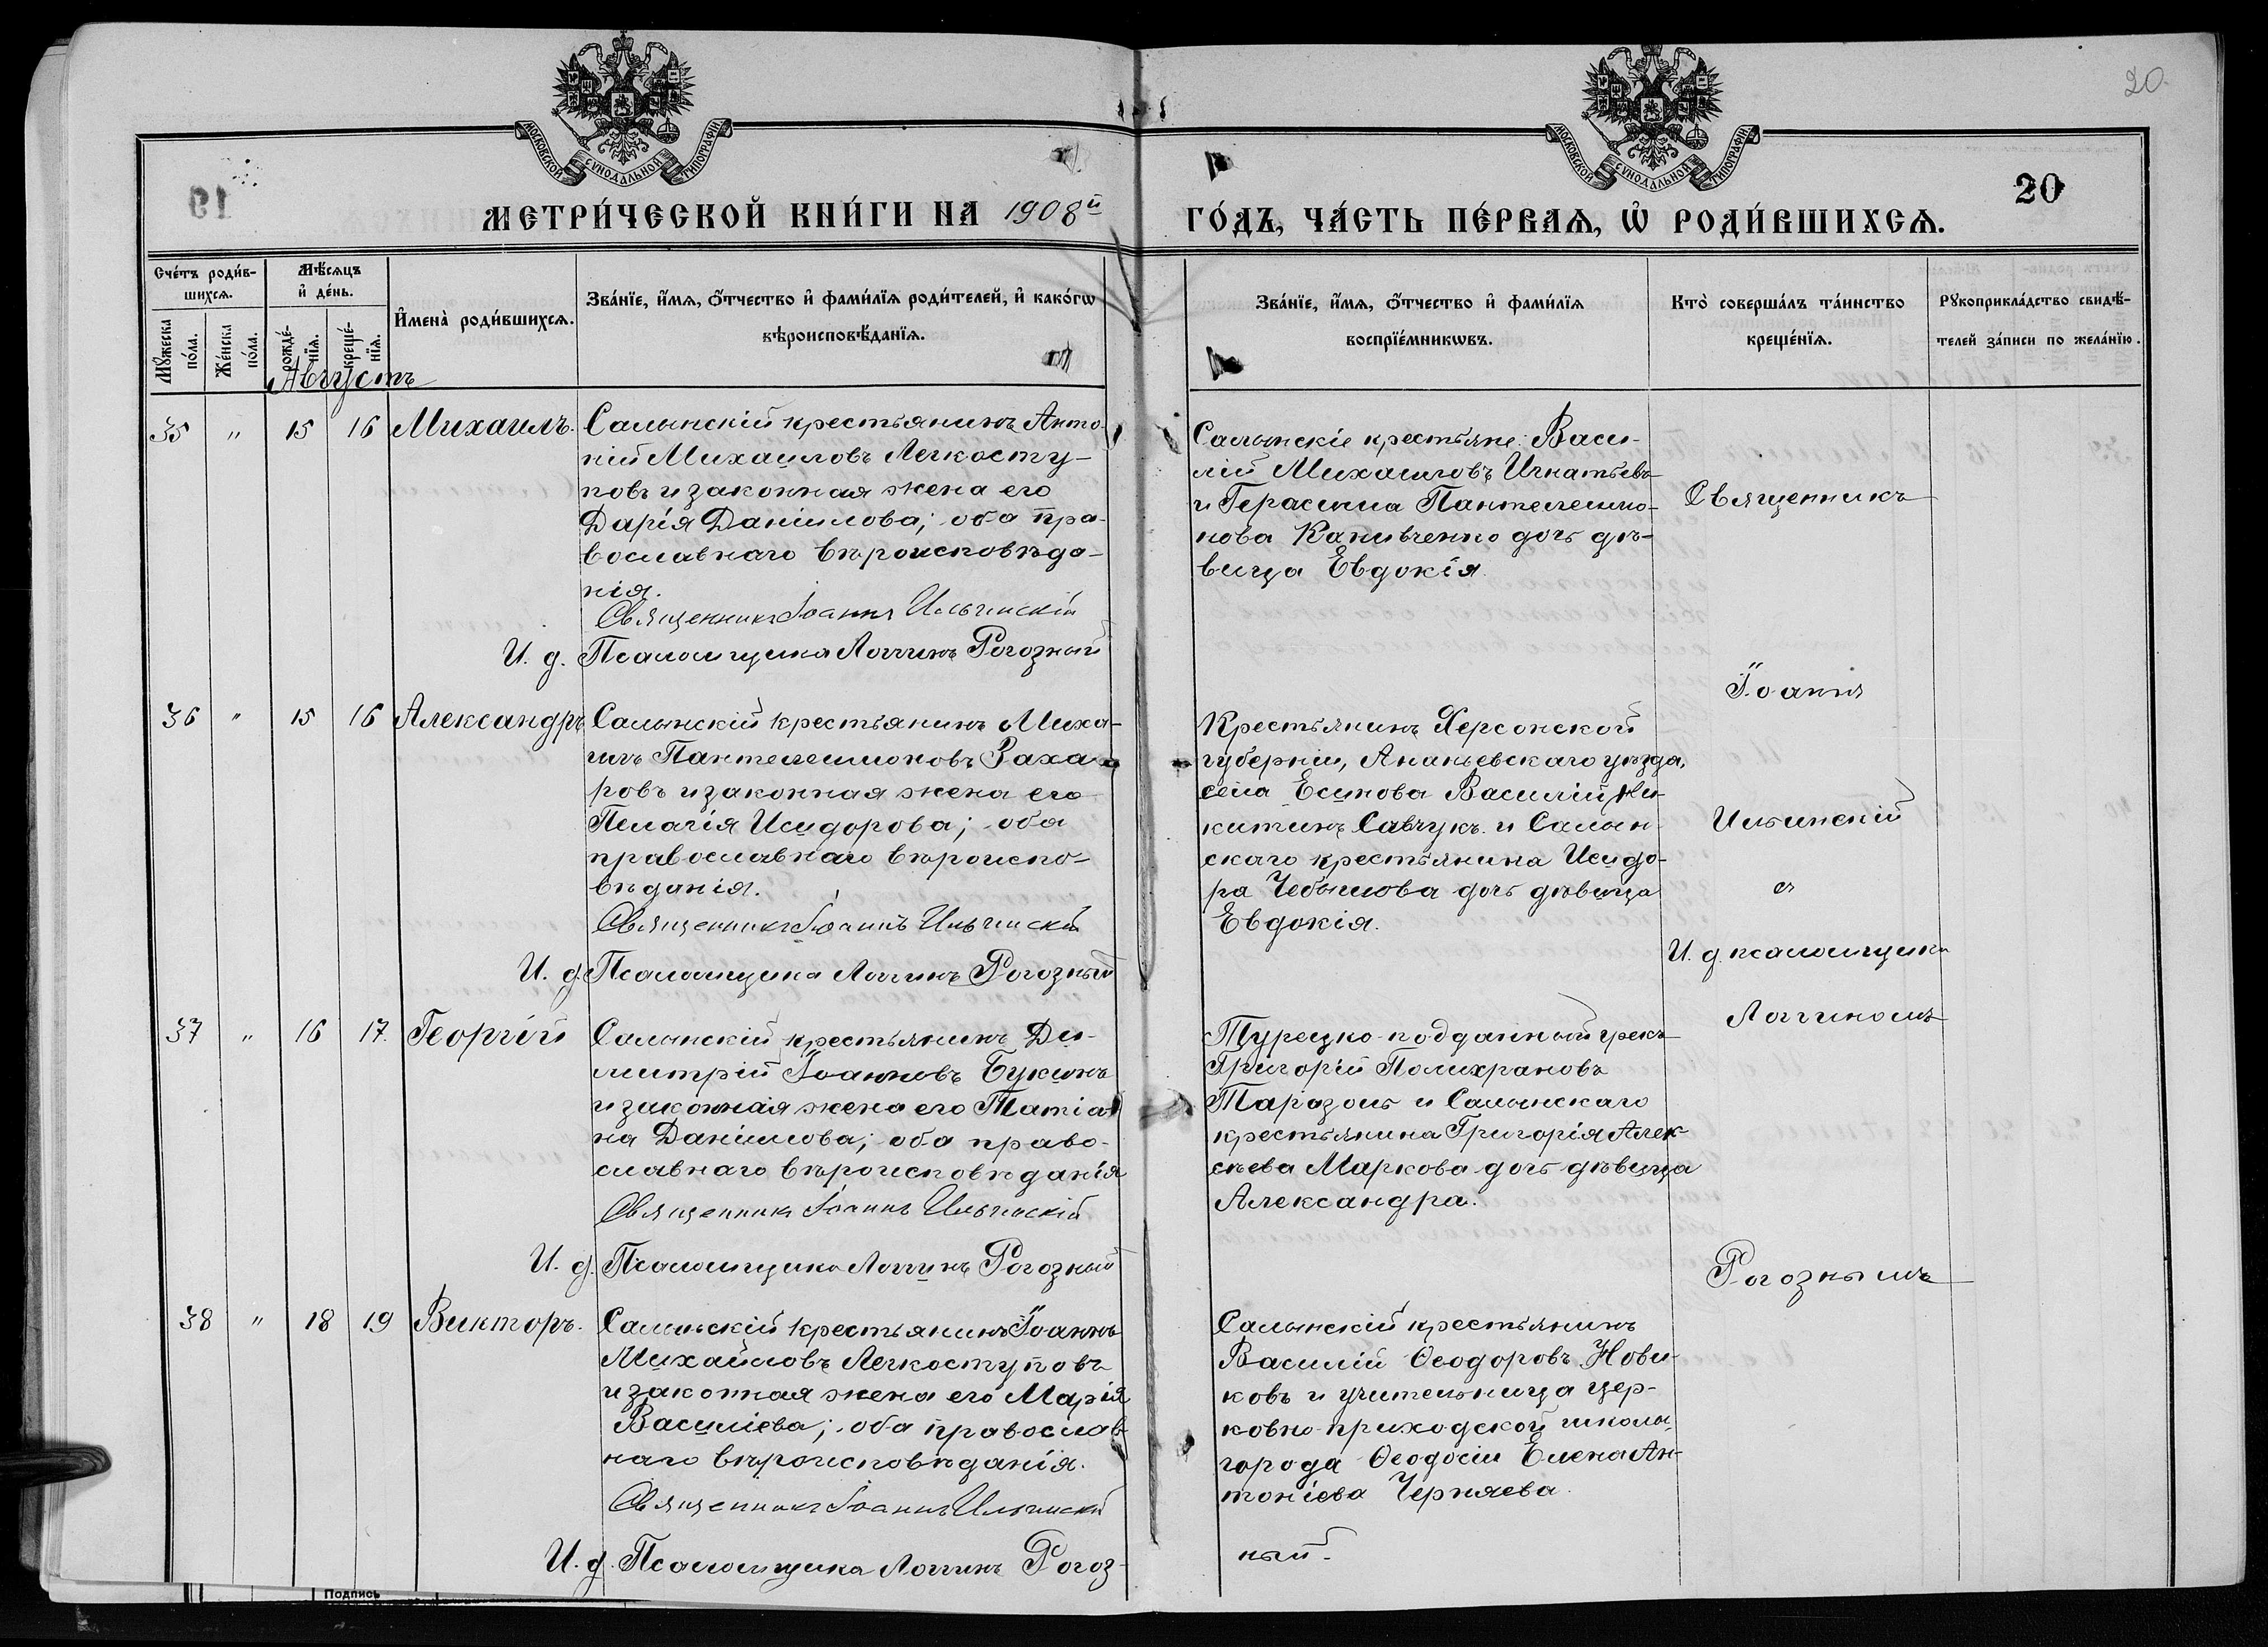 20.
МОСКОВСКОЙ СѴНОДАЛЬНОЙ ТИПОГРАФІИ
МОСКОВСКОЙ СѴНОДАЛЬНОЙ ТИПОГРАФІИ
20
МЕТРИ́ЧЕСКОЙ КНИ́ГИ НА 1908й
ГО́ДЪ, ЧА́СТЬ ПЕ́РВАѦ, Ѡ҆ РОДИ́ВШИХСѦ.
Сче́тъ роди́в-
шихсѧ.
Мѣ́сѧцъ
и҆ де́нь.
Мꙋ́жеска
по́ла.
Же́нска
по́ла.
рожде́-
нїѧ.
креще́-
нїѧ.
И҆мена̀ роди́вшихсѧ.
Зва́нїе, и҆́мѧ, ѻ҆́тчество и҆ фами́лїѧ роди́телей, и҆ како́гѡ
вѣроисповѣ́данїѧ.
Зва́нїе, и҆́мѧ, ѻ҆́тчество и҆ фами́лїѧ
воспрїе́мникѡвъ.
Кто̀ соверша́лъ та́инство
креще́нїѧ.
Рꙋкоприкла́дство свидѣ́-
телей за́писи по жела́нїю.
Августъ
35 " 15 16 Михаилъ.
Салынскій крестьянинъ Анто-
ній Михаиловъ Легкосту-
повъ и законная жена его
Дарія Даніилова; оба пра-
вославнаго вѣроисповѣда-
нія.
Священникъ Іоаннъ Ильчинскій
И. д. Псаломщика Логгинъ Рогозный
Салынскіе крестьяне: Васи-
лій Михаиловъ Игнатьевъ
и Герасима Пантелеимо-
нова Канивченко дочь дѣ-
вица Евдокія.
36 " 15 16 Александръ
Салынскій крестьянинъ Миха-
илъ Пантелеимоновъ Заха-
ровъ и законная жена его
Пелагія Исидорова; оба
православнаго вѣроиспо-
вѣданія.
Священникъ Іоаннъ Ильчинскій
И. д. Псаломщика Логгинъ Рогозный
Крестьянинъ Херсонской
губерніи, Ананьевскаго уѣзда,
села Есипова Василій Ни-
китинъ Савчукъ и Салын-
скаго крестьянина Исидо-
ра Чебышова дочь дѣвица
Евдокія.
37 " 16 17. Георгій
Салынскій крестьянинъ Ди-
митрій Іоанновъ Букинъ
и законная жена его Татіа-
на Даніилова; оба право-
славнаго вѣроисповѣданія
Священникъ Іоаннъ Ильчинскій
И. д. Псаломщика Логгинъ Рогозный
Турецко-подданный грекъ
Григорій Полихрановъ
Таразоль и Салынскаго
крестьянина Григорія Алек-
сѣева Маркова дочь дѣвица
Александра.
38 " 18 19 Викторъ.
Салынскій крестьянинъ Іоаннъ
Михайловъ Легкоступовъ
и законная жена его Марія
Василіева; оба православ-
наго вѣроисповѣданія.
Священникъ Іоаннъ Ильчинскій
И. д. Псаломщика Логгинъ Рогоз-
Салынскій крестьянинъ
Василій Ѳеодоровъ Нови-
ковъ и учительница цер-
ковно-приходской школы
города Ѳеодосіи Елена Ан-
тоніева Черняева.
ный.
Священникъ
Іоаннъ
Ильчинскій
съ
И. д. псаломщика
Логгиномъ
Рогознымъ
Подпись